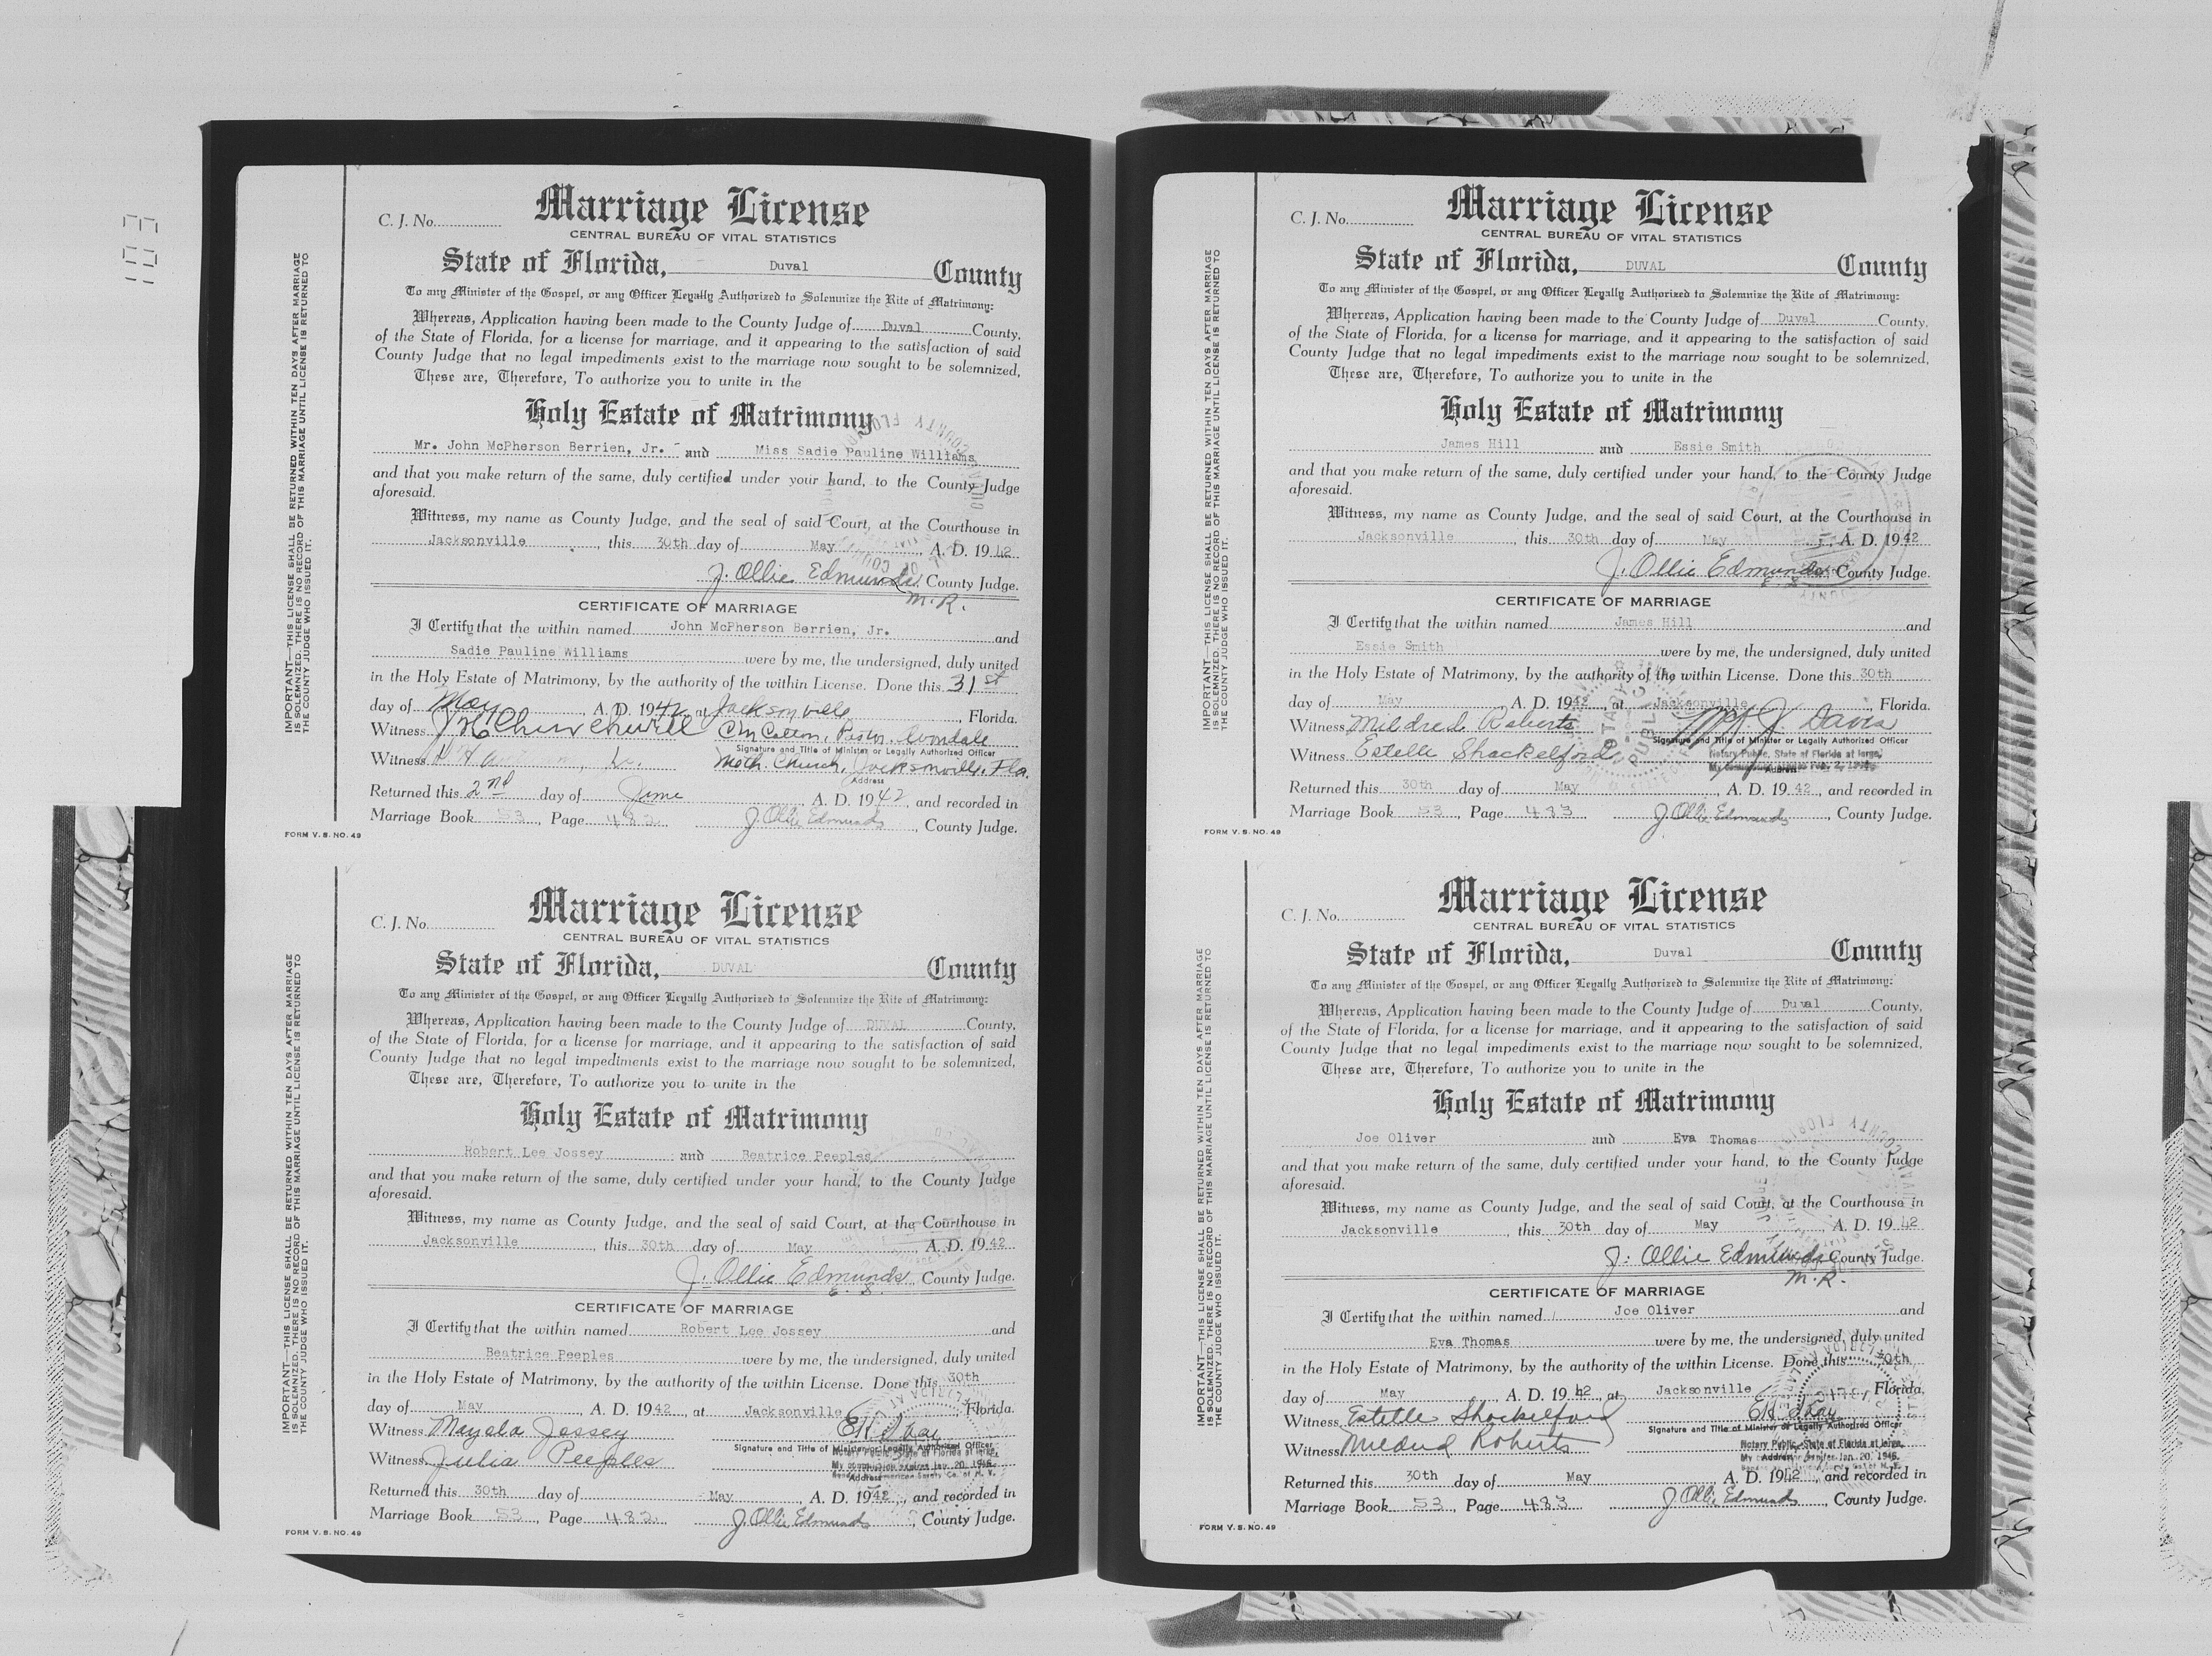 103
IMPORTANT—THIS LICENSE SHALL BE RETURNED WITHIN TEN DAYS AFTER MARRIAGE
IS SOLEMNIZED. THERE IS NO RECORD OF THIS MARRIAGE UNTIL LICENSE IS RETURNED TO
THE COUNTY JUDGE WHO ISSUED IT.
C. J. No.
Marriage License
CENTRAL BUREAU OF VITAL STATISTICS
State of Florida, Duval County
To any Minister of the Gospel, or any Officer Legally Authorized to Solemnize the Rite of Matrimony:
Whereas, Application having been made to the County Judge of Duval County,
of the State of Florida, for a license for marriage, and it appearing to the satisfaction of said
County Judge that no legal impediments exist to the marriage now sought to be solemnized,
These are, Therefore, To authorize you to unite in the
Holy Estate of Matrimony
Mr. John McPherson Berrien, Jr. and Miss Sadie Pauline Williams
and that you make return of the same, duly certified under your hand, to the County Judge
aforesaid.
Witness, my name as County Judge, and the seal of said Court, at the Courthouse in
Jacksonville, this 30th day of May A. D. 1942
J. Ollie Edmunds County Judge.
M. R.
CERTIFICATE OF MARRIAGE
I Certify that the within named John McPherson Berrien, Jr. and
Sadie Pauline Williams were by me, the undersigned, duly united
in the Holy Estate of Matrimony, by the authority of the within License. Done this 31st
day of May, A. D. 1942, at Jacksonville, Florida.
Witness Churchwell Pastor, Avondale
Signature and Title of Minister or Legally Authorized Officer
Witness Meth. Church, Jacksonville, Fla.
Address
Returned this 2nd day of June A. D. 1942, and recorded in
Marriage Book 53, Page 482 J. Ollie Edmunds, County Judge.
FORM V. S. NO. 49
IMPORTANT—THIS LICENSE SHALL BE RETURNED WITHIN TEN DAYS AFTER MARRIAGE
IS SOLEMNIZED. THERE IS NO RECORD OF THIS MARRIAGE UNTIL LICENSE IS RETURNED TO
THE COUNTY JUDGE WHO ISSUED IT.
C. J. No.
Marriage License
CENTRAL BUREAU OF VITAL STATISTICS
State of Florida, DUVAL County
To any Minister of the Gospel, or any Officer Legally Authorized to Solemnize the Rite of Matrimony:
Whereas, Application having been made to the County Judge of DUVAL County,
of the State of Florida, for a license for marriage, and it appearing to the satisfaction of said
County Judge that no legal impediments exist to the marriage now sought to be solemnized,
These are, Therefore, To authorize you to unite in the
Holy Estate of Matrimony
Robert Lee Jossey and Beatrice Peeples
and that you make return of the same, duly certified under your hand, to the County Judge
aforesaid.
Witness, my name as County Judge, and the seal of said Court, at the Courthouse in
Jacksonville, this 30th day of May, A. D. 1942
J. Ollie Edmunds, County Judge.
CERTIFICATE OF MARRIAGE
I Certify that the within named Robert Lee Jossey and
Beatrice Peeples were by me, the undersigned, duly united
in the Holy Estate of Matrimony, by the authority of the within License. Done this 30th
day of May, A. D. 1942, at Jacksonville Florida.
Witness Jossey
Signature and Title of Minister or Legally Authorized Officer
Witness Julia Peeples
Notary Public, State of Florida at large,
My commission expires Jan. 20, 1946.
Address
Returned this 30th day of May, A. D. 1942, and recorded in
Marriage Book 53, Page 482 J. Ollie Edmunds, County Judge.
FORM V. S. NO. 49
IMPORTANT—THIS LICENSE SHALL BE RETURNED WITHIN TEN DAYS AFTER MARRIAGE
IS SOLEMNIZED. THERE IS NO RECORD OF THIS MARRIAGE UNTIL LICENSE IS RETURNED TO
THE COUNTY JUDGE WHO ISSUED IT.
C. J. No.
Marriage License
CENTRAL BUREAU OF VITAL STATISTICS
State of Florida, DUVAL County
To any Minister of the Gospel, or any Officer Legally Authorized to Solemnize the Rite of Matrimony:
Whereas, Application having been made to the County Judge of Duval County,
of the State of Florida, for a license for marriage, and it appearing to the satisfaction of said
County Judge that no legal impediments exist to the marriage now sought to be solemnized,
These are, Therefore, To authorize you to unite in the
Holy Estate of Matrimony
James Hill and Essie Smith
and that you make return of the same, duly certified under your hand, to the County Judge
aforesaid.
Witness, my name as County Judge, and the seal of said Court, at the Courthouse in
Jacksonville, this 30th day of May, A. D. 1942
J. Ollie Edmunds County Judge.
CERTIFICATE OF MARRIAGE
I Certify that the within named James Hill and
Essie Smith were by me, the undersigned, duly united
in the Holy Estate of Matrimony, by the authority of the within License. Done this 30th
day of May A. D. 1942, at Jacksonville, Florida.
Witness Mildred Roberts Davis
NOTARY PUBLIC
Signature and Title of Minister or Legally Authorized Officer
Witness Estelle Shackelford
Notary Public, State of Florida at large,
Address
Returned this 30th day of May, A. D. 1942, and recorded in
Marriage Book 53, Page 483 J. Ollie Edmunds, County Judge.
FORM V. S. NO. 49
IMPORTANT—THIS LICENSE SHALL BE RETURNED WITHIN TEN DAYS AFTER MARRIAGE
IS SOLEMNIZED. THERE IS NO RECORD OF THIS MARRIAGE UNTIL LICENSE IS RETURNED TO
THE COUNTY JUDGE WHO ISSUED IT.
C. J. No.
Marriage License
CENTRAL BUREAU OF VITAL STATISTICS
State of Florida, Duval County
To any Minister of the Gospel, or any Officer Legally Authorized to Solemnize the Rite of Matrimony:
Whereas, Application having been made to the County Judge of Duval County,
of the State of Florida, for a license for marriage, and it appearing to the satisfaction of said
County Judge that no legal impediments exist to the marriage now sought to be solemnized,
These are, Therefore, To authorize you to unite in the
Holy Estate of Matrimony
Joe Oliver and Eva Thomas
and that you make return of the same, duly certified under your hand, to the County Judge
aforesaid.
Witness, my name as County Judge, and the seal of said Court, at the Courthouse in
Jacksonville, this 30th day of May A. D. 1942
J. Ollie Edmunds County Judge.
M. R.
CERTIFICATE OF MARRIAGE
I Certify that the within named Joe Oliver and
Eva Thomas were by me, the undersigned, duly united
in the Holy Estate of Matrimony, by the authority of the within License. Done this 30th
day of May, A. D. 1942, at Jacksonville Florida,
Witness Estelle Shackelford
Signature and Title of Minister or Legally Authorized Officer
Witness Mildred Roberts
Notary Public, State of Florida at large,
Address
Returned this 30th day of May A. D. 1942, and recorded in
Marriage Book 53, Page 483 J. Ollie Edmunds, County Judge.
FORM V. S. NO. 49